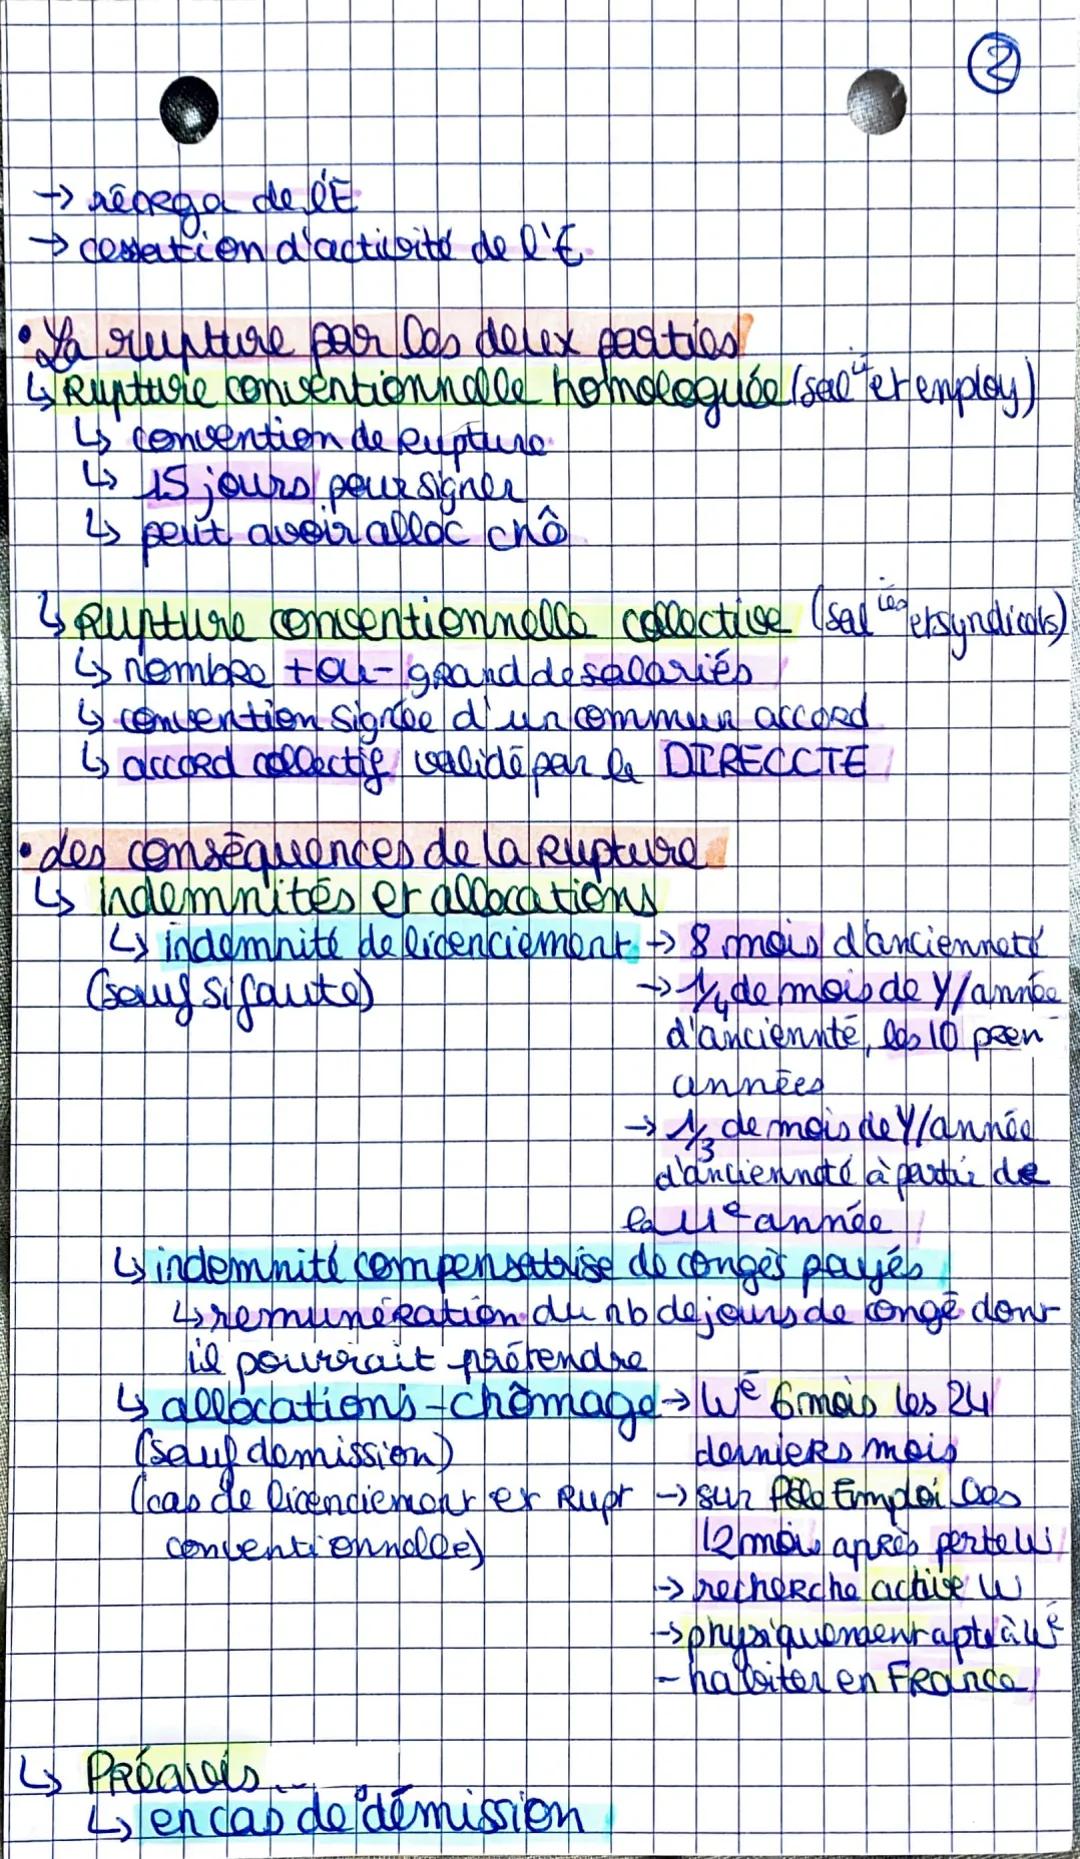 ②
→ réorga de l'E
→ cessation d'activité de l'E
• La rupture par les deux parties
↳ Rupture conventionnelle homologuée (sal ié et employ)
↳ convention de Rupture
↳ 15 jours pour signer
↳ peut avoir alloc chô
↳ Rupture conventionnelle collective (sal iés et syndicats)
↳ nombre + ou - grand de salariés
↳ convention signée d'un commun accord
↳ accord collectif validé par la DIRECCTE
• des conséquences de la Rupture
↳ indemnités et allocations
↳ indemnité de licenciement → 8 mois d'ancienneté
(sauf si faute) → 1/4 de mois de Y/année
d'anciennté, les 10 prem
années
→ 1/3 de mois de Y/année
d'ancienneté à partir de
la 11e année
↳ indemnité compensatrise de congés payés
↳ remunération du nb de jours de congé dont
il pourrait prétendre
↳ allocations-chômage → W é 6 mois les 24
(sauf demission) derniers mois
(cas de licenciement et Rupt → sur Pôle Emploi les
conventionnelle) 12 mois après perte W
→ recherche active W
→ physiquement apte à W é
- habiter en France
↳ Préavis
↳ en cas de démission